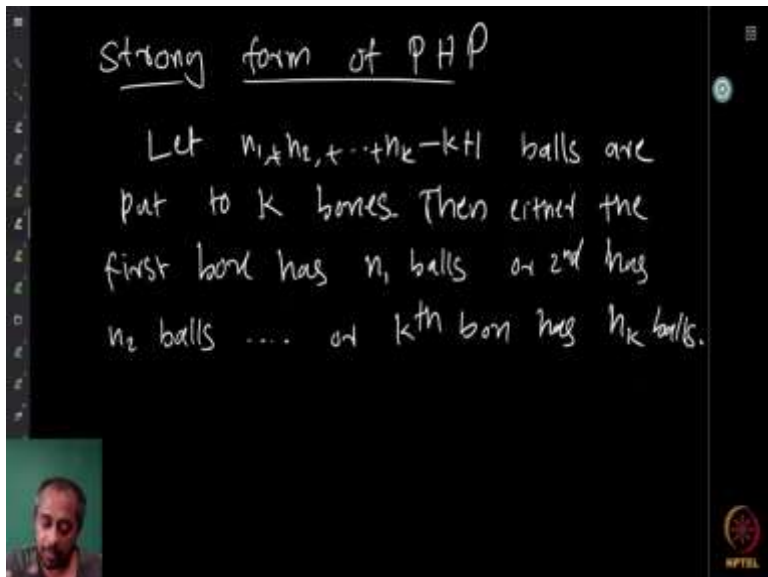 Strong form of PHP
Let n₁+n₂+⋯+nₖ−k+1 balls are
put to K boxes. Then either the
first box has n₁ balls or 2nd has
n₂ balls .... or kth box has nₖ balls.
NPTEL